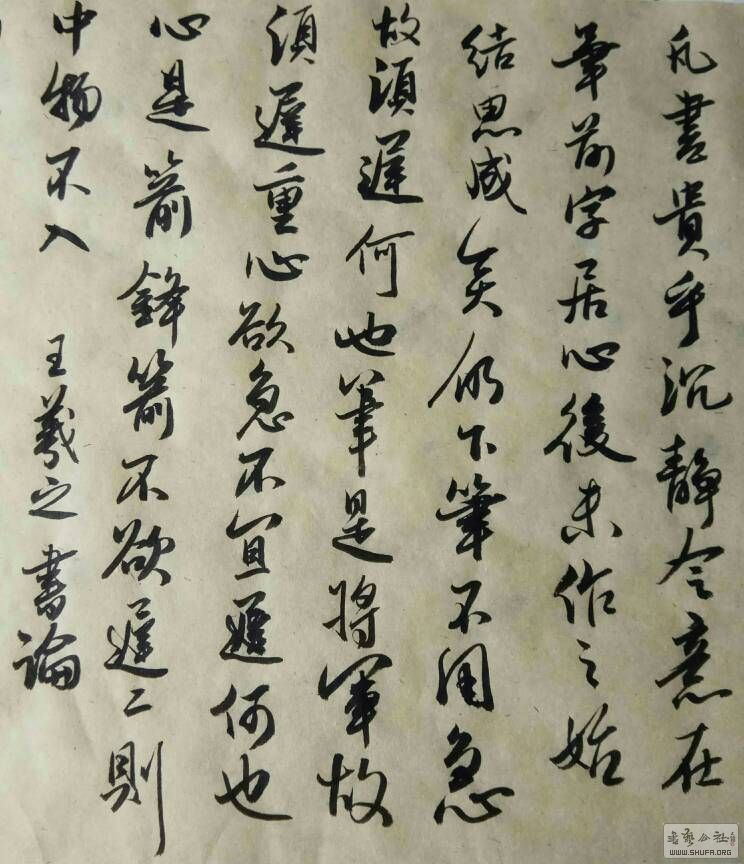 凡書貴乎沉靜令意在
筆前字居心後未作之始
結思成矣仍下筆不用急
故須遲何也筆是將軍故
須遲重心欲急不宜遲何也
心是箭鋒箭不欲遲二則
中物不入
王羲之書論
書藝公社
WWW.SHUFA.ORG